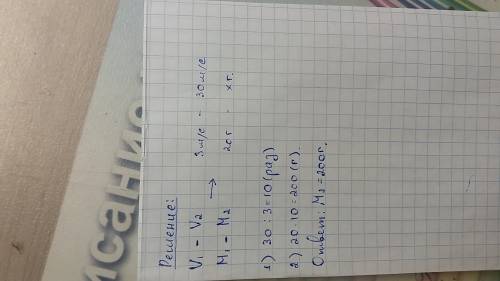 Решение:
V₁ - V₂ → 3м/с - 30м/с
M₁ - M₂ 20г - xг.
1) 30 : 3 = 10 (раз)
2) 20 · 10 = 200 (г).
Ответ: M₂ = 200г.
исание